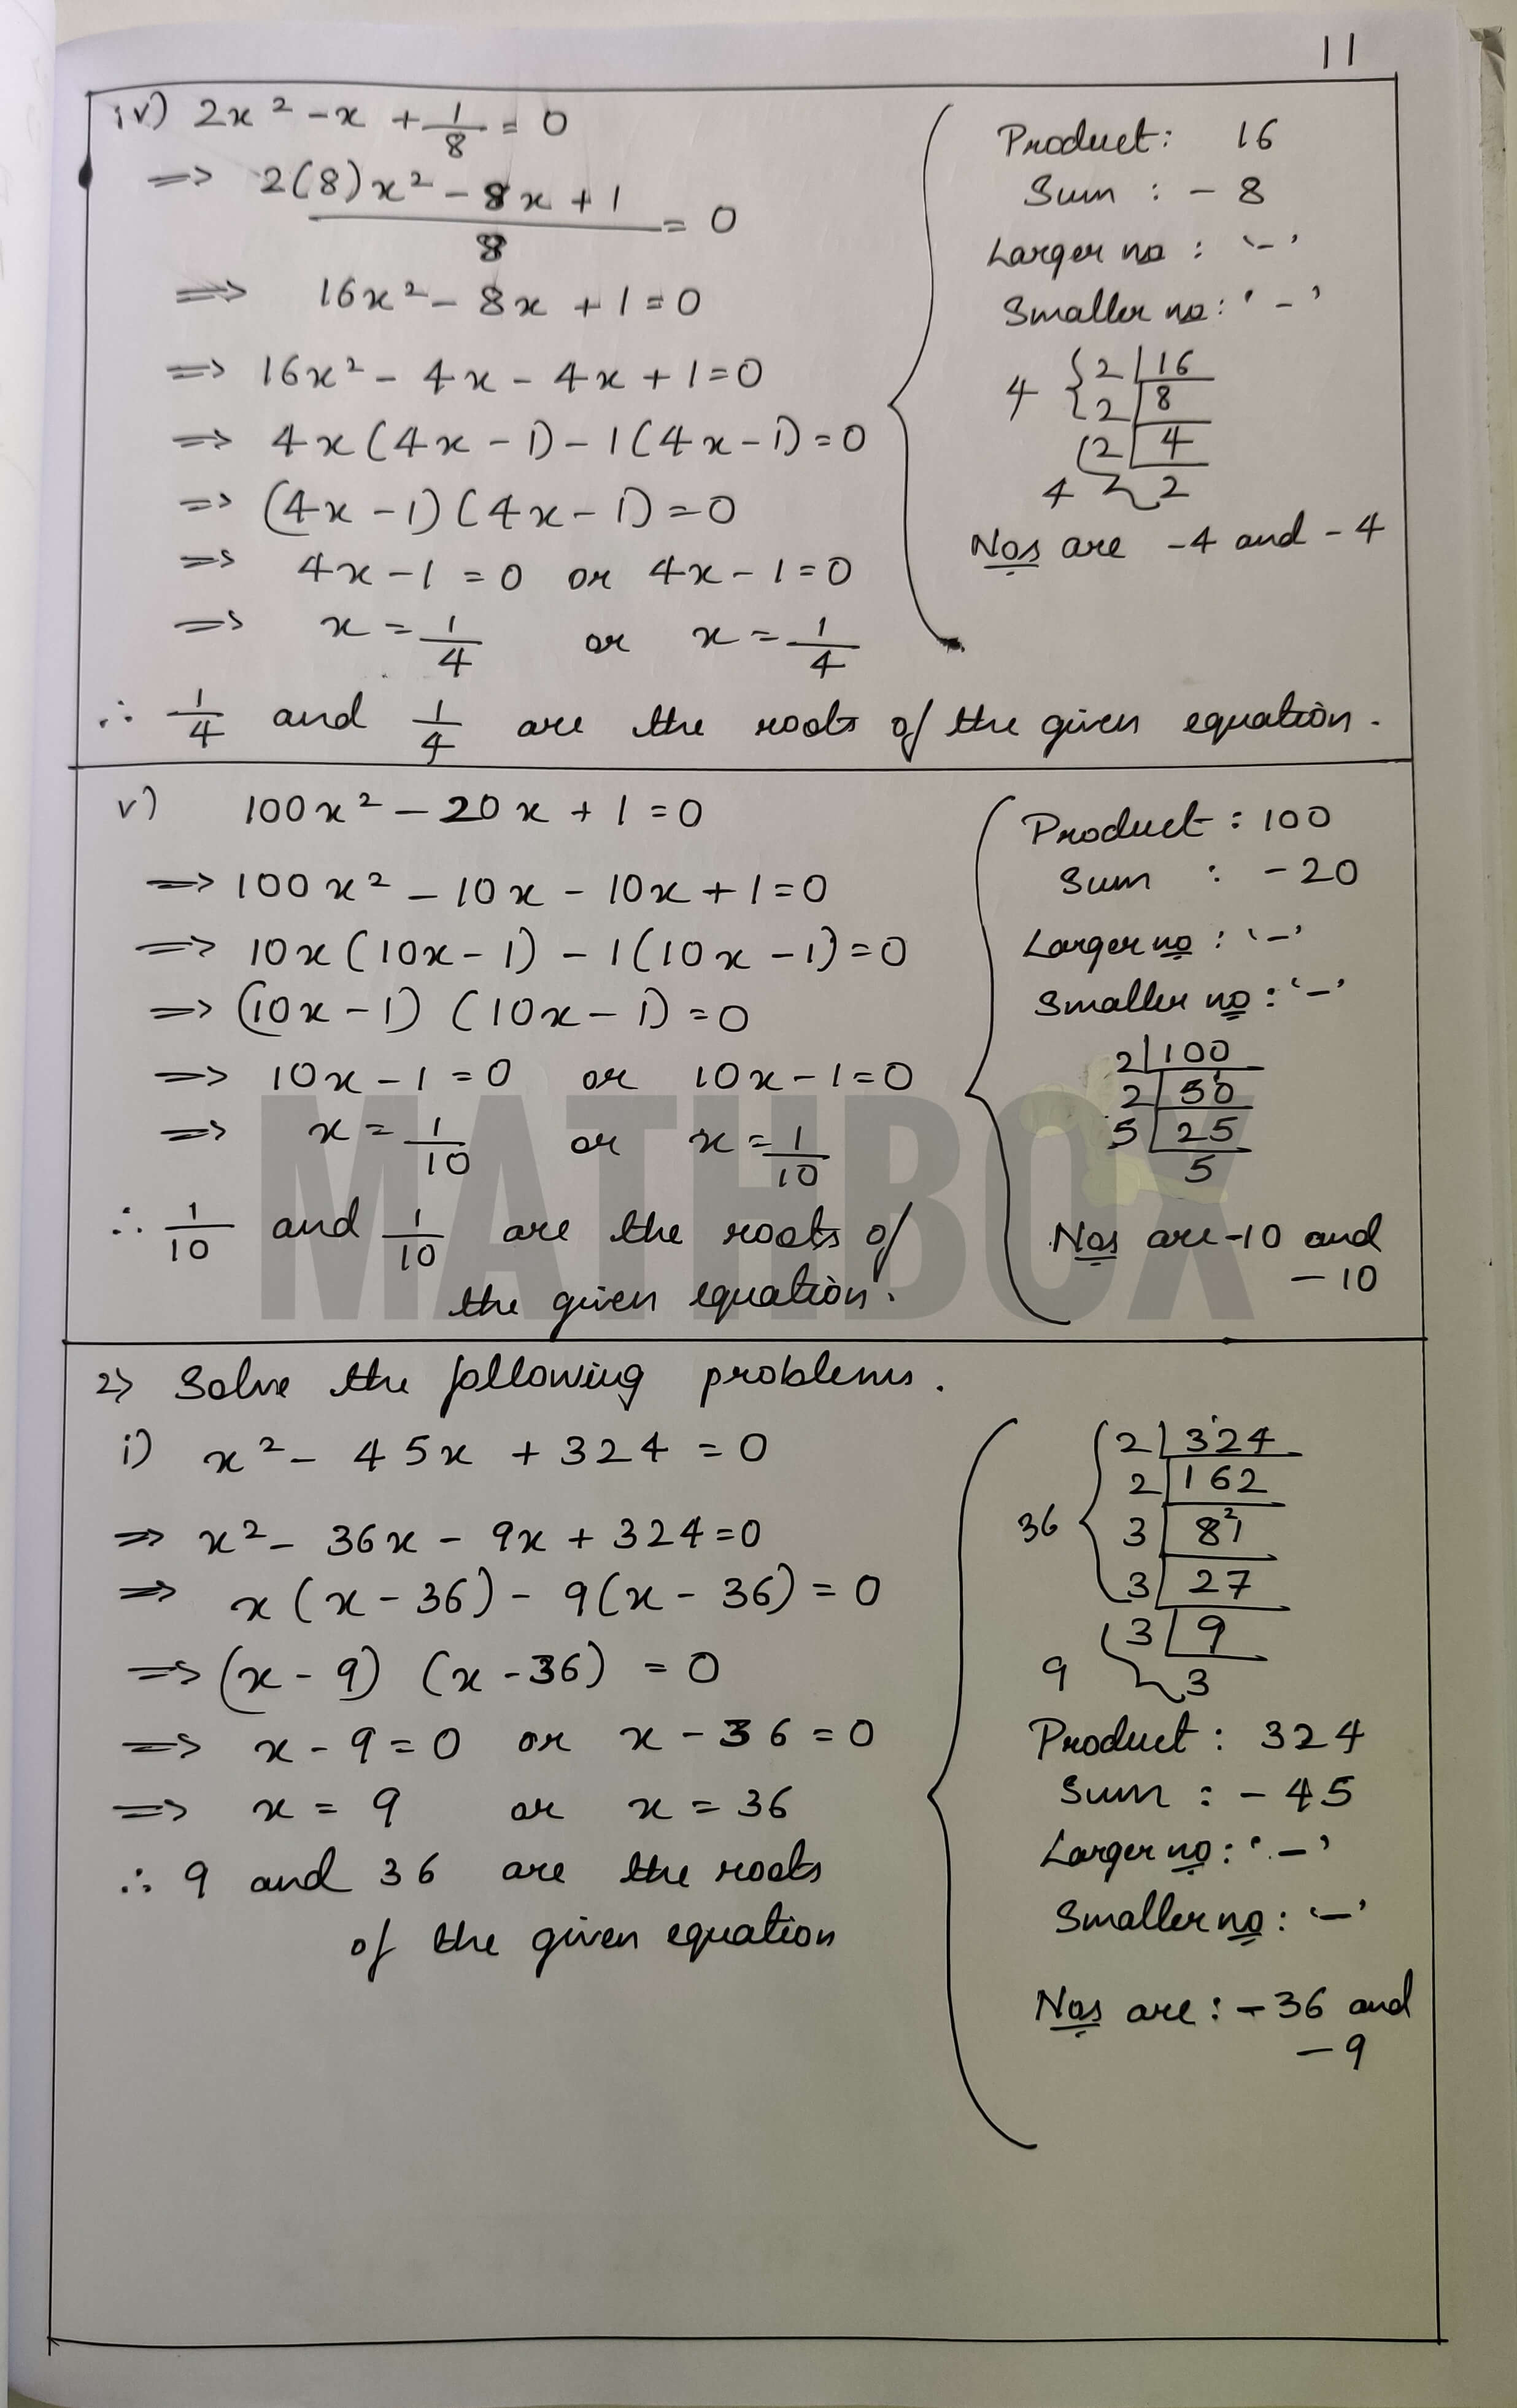 11
iv) 2x² - x + 1/8 = 0
=> 2(8)x² - 8x + 1 / 8 = 0
=> 16x² - 8x + 1 = 0
=> 16x² - 4x - 4x + 1 = 0
=> 4x(4x - 1) - 1(4x - 1) = 0
=> (4x - 1)(4x - 1) = 0
=> 4x - 1 = 0 or 4x - 1 = 0
=> x = 1/4 or x = 1/4
∴ 1/4 and 1/4 are the roots of the given equation.
Product: 16
Sum : - 8
Larger no : '-'
Smaller no : '-'
4 { 2 | 16
2 | 8
2 | 4
4 2
Nos are -4 and -4
v) 100x² - 20x + 1 = 0
=> 100x² - 10x - 10x + 1 = 0
=> 10x(10x - 1) - 1(10x - 1) = 0
=> (10x - 1) (10x - 1) = 0
=> 10x - 1 = 0 or 10x - 1 = 0
=> x = 1/10 or x = 1/10
∴ 1/10 and 1/10 are the roots of
the given equation.
Product : 100
Sum : - 20
Larger no : '-'
Smaller no : '-'
2 | 100
2 | 50
5 | 25
5
Nos are -10 and
- 10
MATHBOX
2) Solve the following problems.
i) x² - 45x + 324 = 0
=> x² - 36x - 9x + 324 = 0
=> x(x - 36) - 9(x - 36) = 0
=> (x - 9) (x - 36) = 0
=> x - 9 = 0 or x - 36 = 0
=> x = 9 or x = 36
∴ 9 and 36 are the roots
of the given equation
2 | 324
2 | 162
36 { 3 | 81
3 | 27
3 | 9
9 3
Product : 324
Sum : - 45
Larger no : '-'
Smaller no : '-'
Nos are : - 36 and
- 9